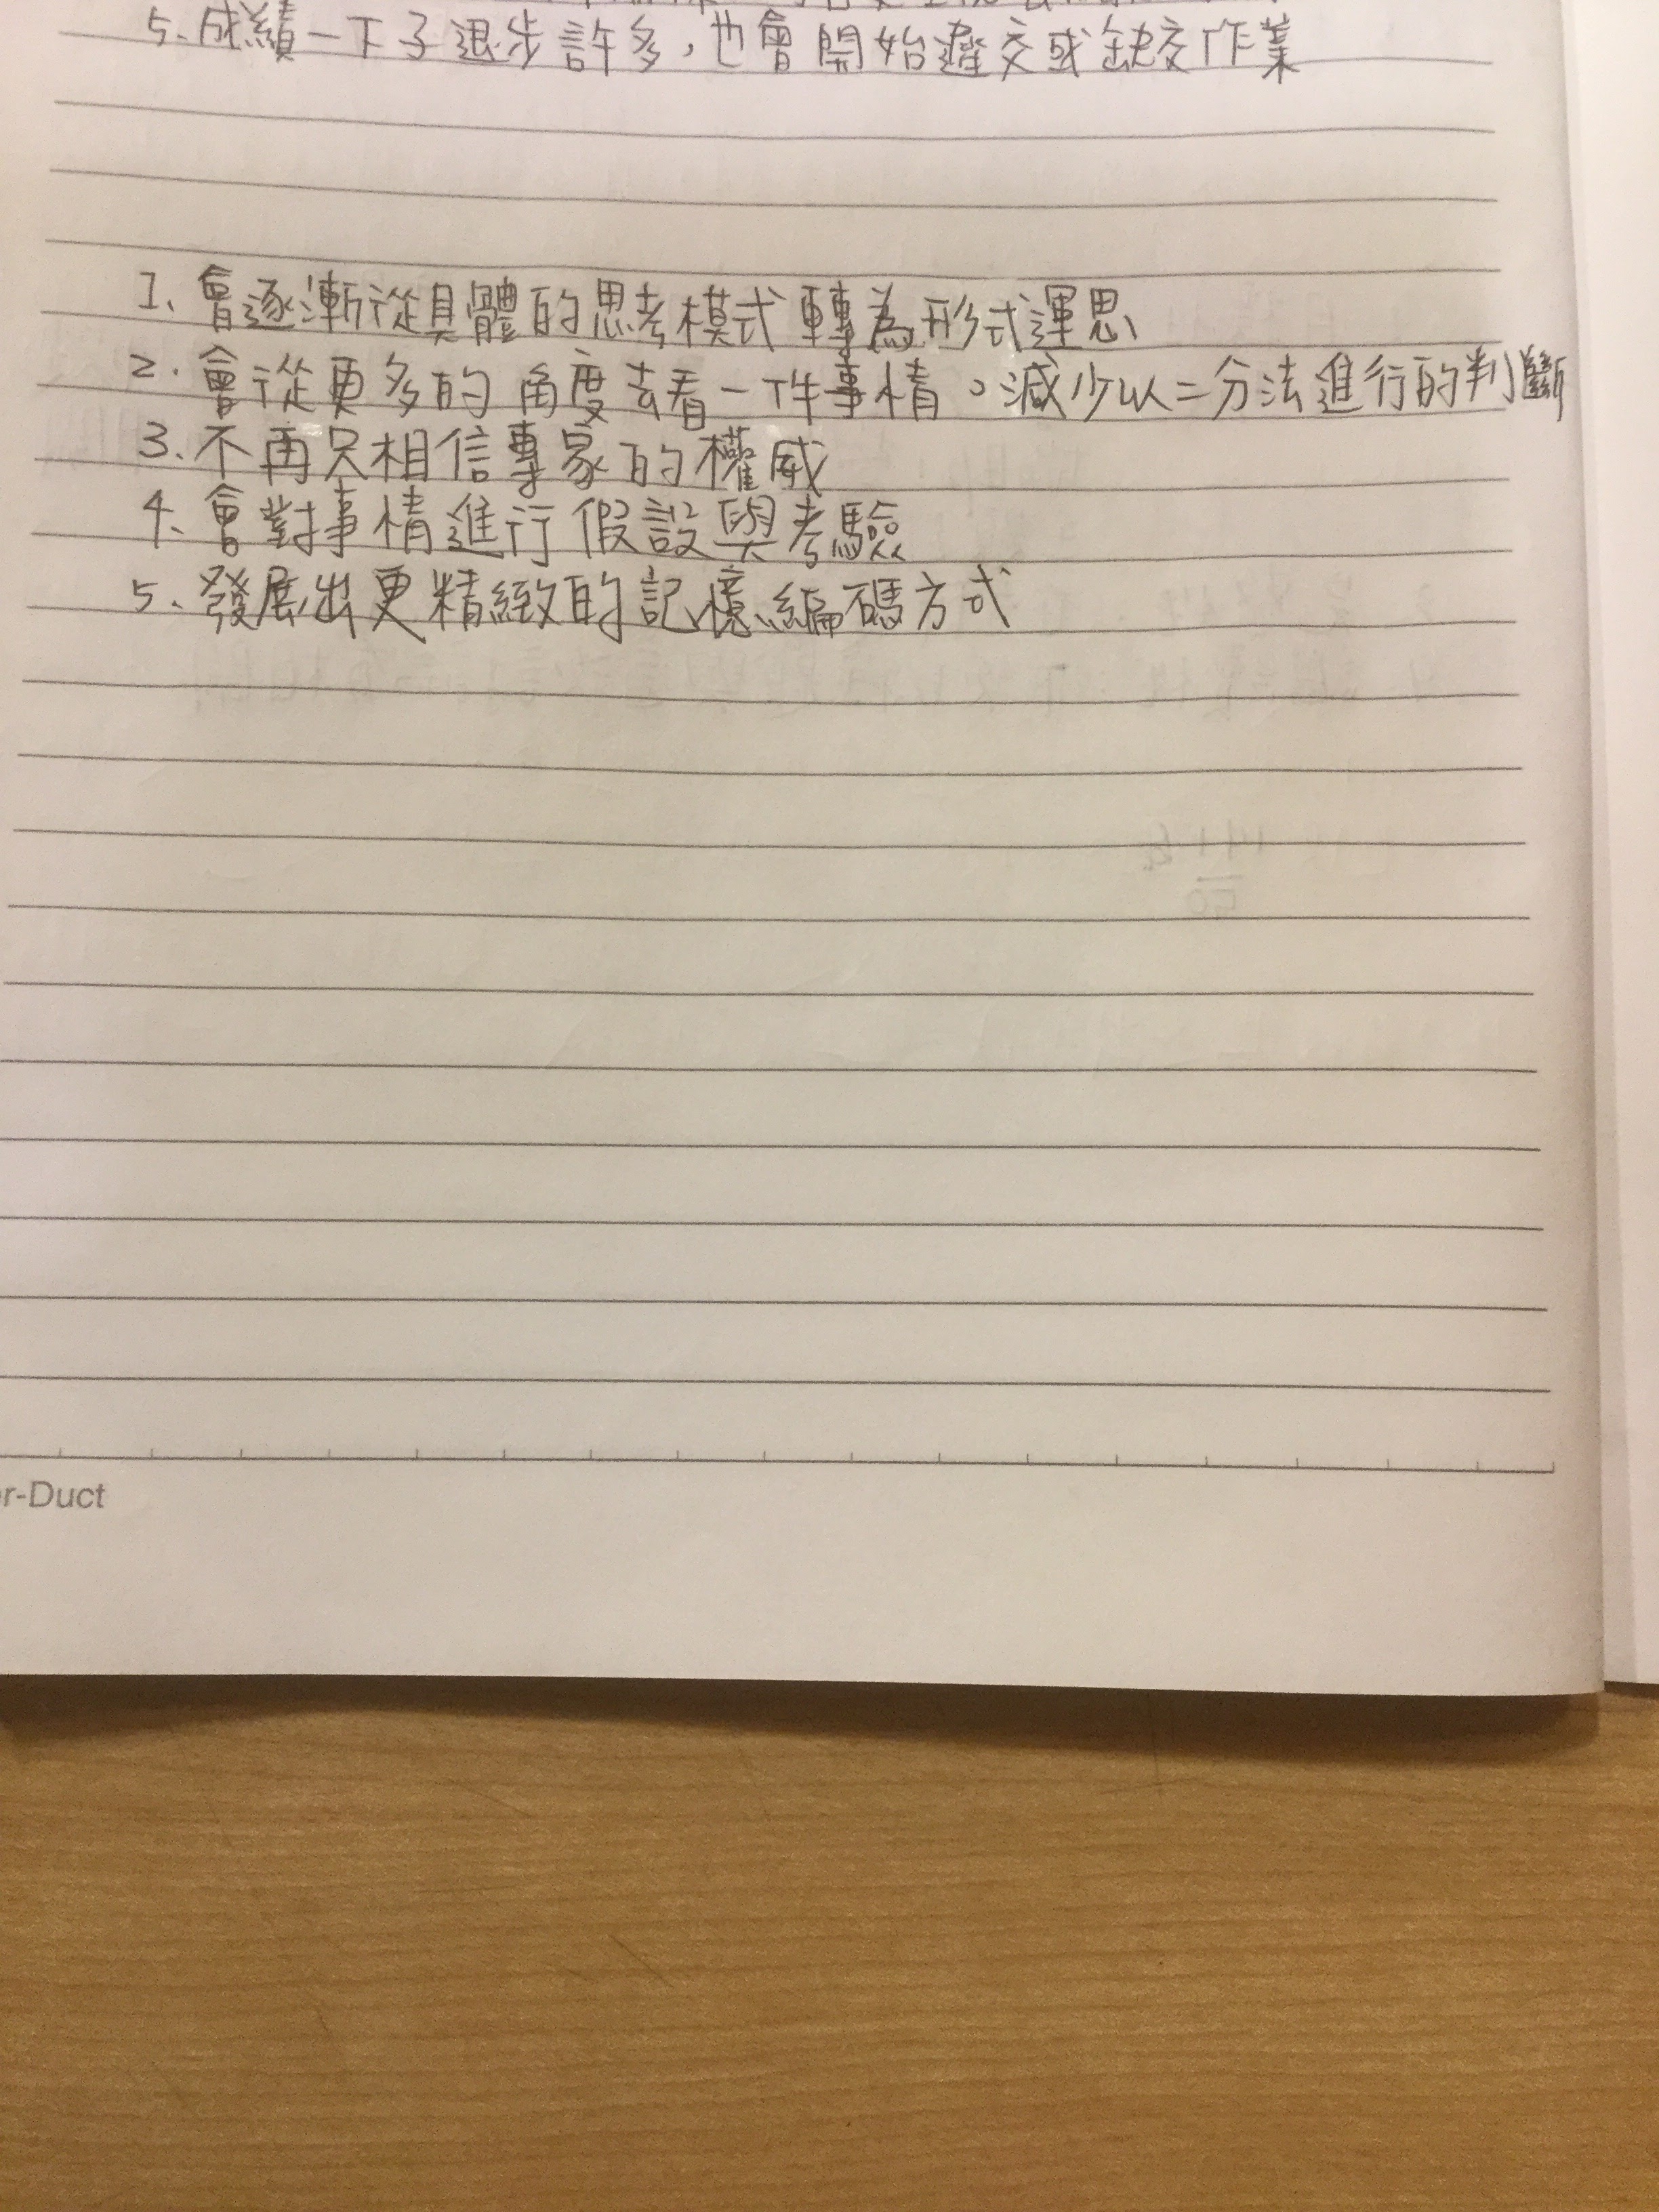 5、成績一下子退步許多，也會開始遲交或缺交作業
1、會逐漸從具體的思考模式轉為形式運思
2、會從更多的角度去看一件事情。減少以二分法進行的判斷
3、不再只相信專家的權威
4、會對事情進行假設與考驗
5、發展出更精緻的記憶編碼方式
r-Duct